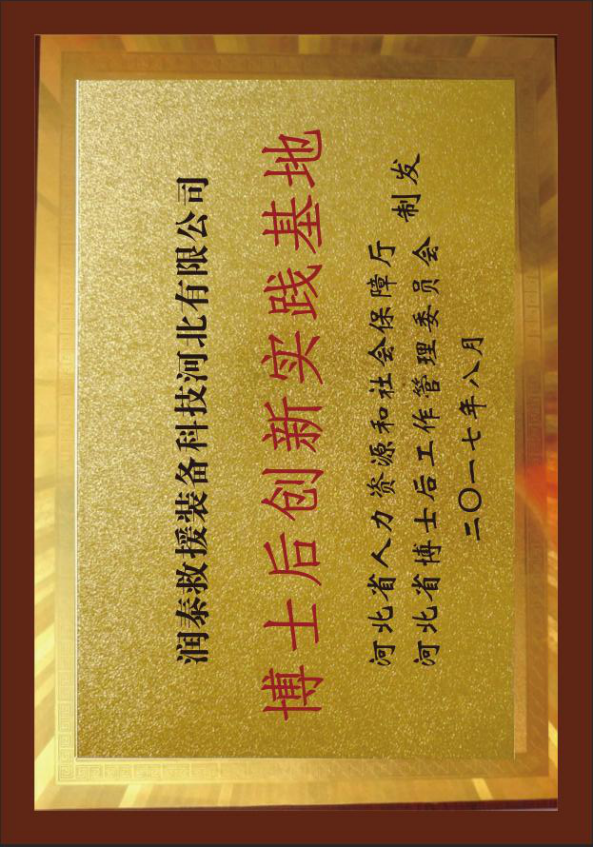 润泰救援装备科技河北有限公司
博士后创新实践基地
河北省人力资源和社会保障厅
河北省博士后工作管理委员会 制发
二〇一七年八月